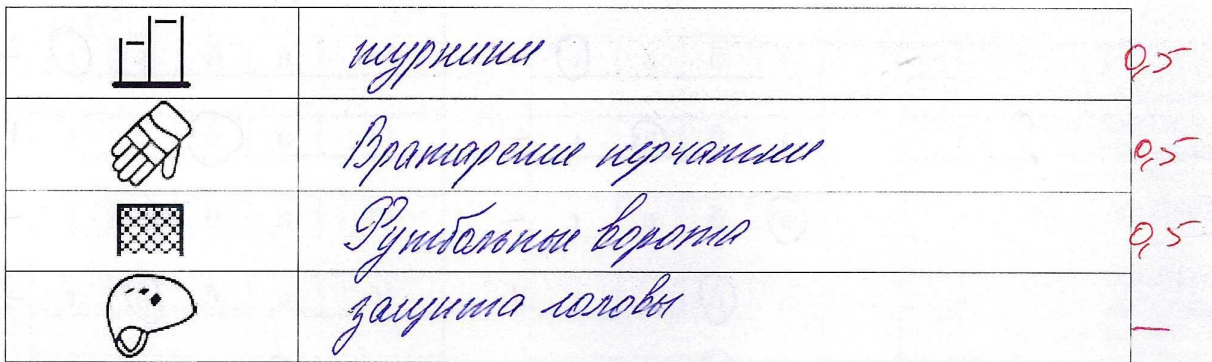 турники 0,5
Вратарские перчатки 0,5
Футбольные ворота 0,5
защита головы —